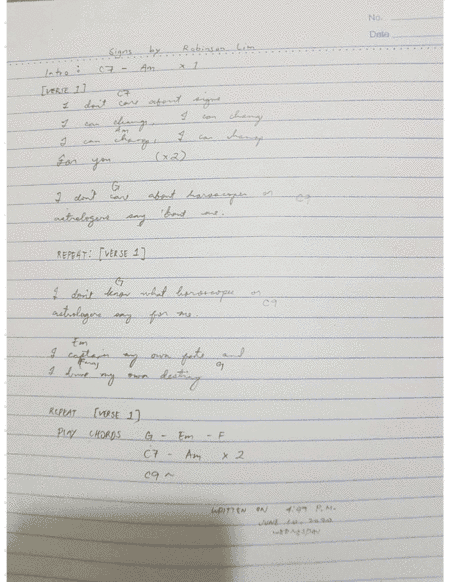 No.
Date
Signs by Robinson Lim
Intro: C7 - Am x 1
[VERSE 1]
C7
I don't care about signs
I can change, I can change
Am
I can change, I can change
For you (x2)
G
I don't care about horoscopes or C9
astrologers say 'bout me.
REPEAT: [VERSE 1]
G
I don't know what horoscopes or C9
astrologers say for me.
Em
I my own fate and
I my own destiny
REPEAT [VERSE 1]
PLAY CHORDS G - Em - F
C7 - Am x 2
C9 ~
WRITTEN ON P.M.
JUNE 10, 2020